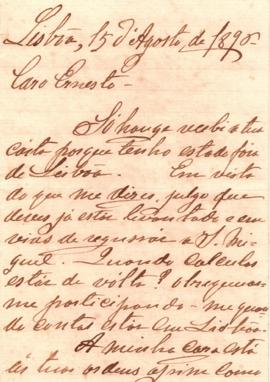 Lisbôa, 15 d'Agosto, de 1890
Caro Ernesto -
Só hauje recebi a tua
carta porque tenho estado fóra
de Lisbôa. Em vista
do que me dizes, julgo que
deves já estar e em
vias de regressar a S. Mi-
guel. Quando calculas
estar de volta? obsequeias-
me participando-me quan-
do contas estar em Lisbôa.
A minha casa está
ás tuas ordens assim como